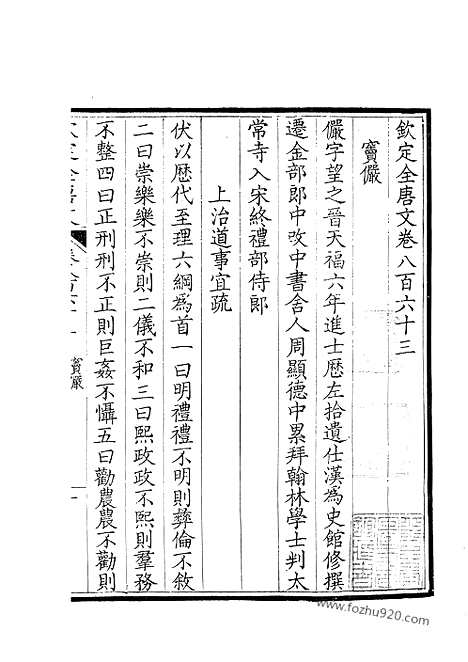 欽定全唐文卷八百六十三
竇儼
儼字望之晉天福六年進士歷左拾遺仕漢為史館修撰
遷金部郎中改中書舍人周顯德中累拜翰林學士判太
常寺入宋終禮部侍郎
上治道事宜疏
伏以歷代至理六綱為首一曰明禮禮不明則彝倫不敘
二曰崇樂樂不崇則二儀不和三曰熙政政不熙則羣務
不整四曰正刑刑不正則巨姦不懾五曰勸農農不勸則
竇儼
一
www.fozhu920.com